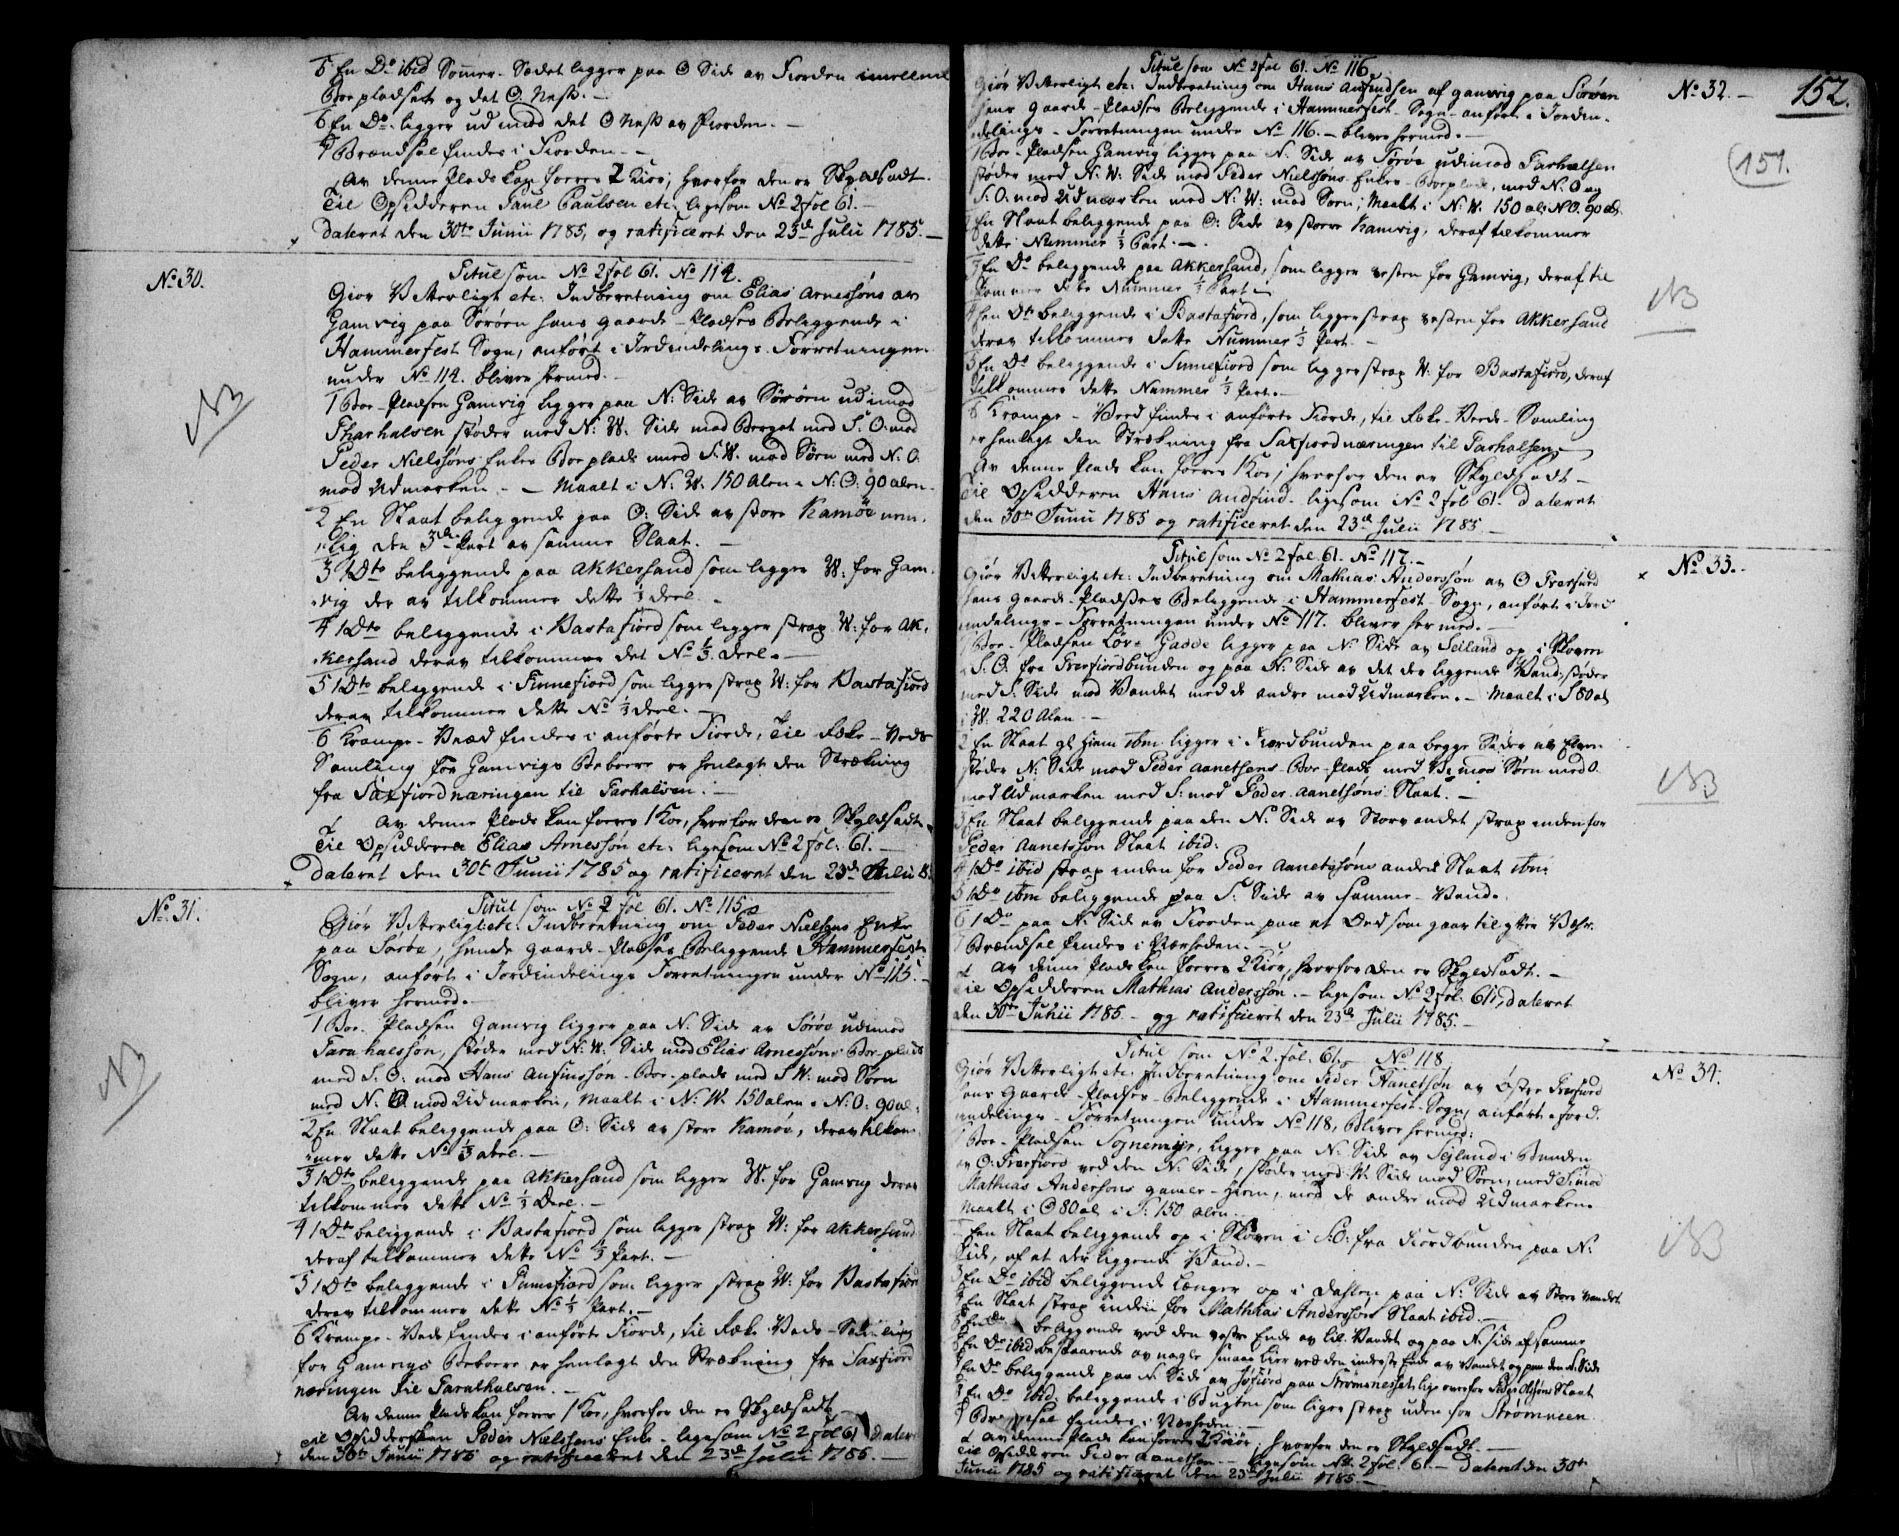 5 En Do ibid Sommer-Sædet ligger paa O Side av Fiorden imellem
Boepladset og det O: Næss. –
6 En Do ligger ud mod det O Næss av Fiorden. –
7 Brændsel findes i Fiorden. –
Av denne Plads kan føres 2 Kiør, hvorfor den er Skyldsadt.
Til Opsidderen Paul Paulsen etc: ligesom No 2 fol 61. –
Dateret den 30te Junii 1785, og ratificeret den 23de Julii 1785. –
No 30.
Titul som No 2 fol 61. No 114.
Giør Vitterligt etc: Indberetning om Elias Arnessøns av
Gamvig paa Sørøen hans gaards-Pladses Beliggende i
Hammerfest Sogn, anført i Jordindelings-Forretningen
under No 114. bliver hermed. –
1 Boe-Pladsen Gamvig ligger paa N: Side av Sørøen ud imod
Tharhalsen støder med N: W. Side mod Berget med S. O: mod
Peder Nielssøns Enkes Boe plads med S. W. mod Søen med N. O.
mod Udmarken. – Maalt i N: W. 150 Alen i N: O: 90 alen.
2 En Slaat beliggende paa O: Side av store Kamøe nem-
lig den 3de Part av samme Slaat. –
3 1 Dto beliggende paa Akkersand som ligger W: for Gam-
vig der av tilkommer dette 1/3 Deel. –
4 1 Dto beliggende i Bastafiord som ligger strax W: for Ak-
kersand derav tilkommer det No 1/3 Deel. –
5 1 Dto beliggende i Finnefiord som ligger strax W: for Bastafiord
derav tilkommer dette No 1/3 Deel. –
6 Krampe-Veed findes i anførte Fiorde, Til Røke-Veeds
Samling for Gamvigs Beboere er henlagt den Strækning
fra Saxfiordnæringen til Tarhalsen. –
Av denne Plads kan føres 1 Koe, hvorfor den er Skyldsadt.
Til Opsidderen Elias Arnessøn etc: ligesom No 2 fol: 61. –
Dateret den 30te Junii 1785 og ratificeret den 23de Julii 8
NB
No 31.
Titul som No 2 fol 61. No 115
Giør Vitterligt etc: Indberetning om Peder Nielsens Enke
paa Sørøe, hendes gaards-Pladses Beliggende Hammerfest
Sogn, anført i Jordindelings Forretningen under No 115. –
bliver hermed. –
1 Boe-Pladsen Gamvig ligger paa N. Side av Sørøe udimod
Tarahalsen, støder med N: W. Side mod Elias Arnessøns Boe-plads
med S. O: mod Hans Anfinssøn-Boe-plads med S W: mod Søen
med N. O mod Udmarken, Maalt i N: W. 150 alen i N: O: 90 al:
2 En Slaat beliggende paa O: Side av store Kamøe, derav tilkom-
mer dette No 1/3 deel. –
3 1 Dto beliggende paa Akkersand som ligger W. for Gamvig derav
tilkommer dette No 1/3 Deel. –
4 1 Dto beliggende i Bastafiord som ligger strax W: for Akkersand
deraf tilkommer dette No 1/3 Part. –
5 1 Dto beliggende i Finnefiord som ligger strax W: for Bastafiord
derav tilkommer dette No 1/3 Part. –
6 Krampe-Veed findes i anførte Fiorde, til Røke Veds-Samling
for Gamvigs Beboere er henlagt den Strækning fra Saxfiord
næringen til Tarahalsen. –
Av denne Plads kan føres 1 Koe, hvorfor den er Skyldsadt. –
Til Opsidderen Peder Nielssøns Enke-ligesom No 2 fol 61 dater
den 30te Junii 1785 og ratificeret den 23de Julii 1785. –
NB
152.
151.
No 32. –
Titul som No 2 fol 61. No 116.
Giør Vitterligt etc: Indberetning om Hans Anfindsen af gamvig paa Sørøen
hans gaards-Pladses Beliggende i Hammerfest-Sogn-anført i Jorden-
delings-Forretningen under No 116. – bliver hermed. –
1 Boe-Pladsen Gamvig ligger paa N. Side av Sørøe udimod Tarhalsen
støder med N. W: Side mod Peder Nielssøns Enkes-Boeplads, med N. O og
S: O. mod Udmarken med N: W: mod Søen; Maalt i N: W. 150 al: N O. 90 al.
2 En Slaat beliggende paa O: Side av store Kamvig, deraf tilkommer
dette Nummer 1/3 Part. –
3 En Do beliggende paa Akkersand, som ligger vesten for Gamvig, deraf til
kommer dette Nummer 1/3 Part –
4 En Dto beliggende i Bastafiord, som ligger strax vesten for Akkersand
derav tilkommer dette Nummer 1/3 Part. –
5 En Do beliggende i Finnefiord som ligger strax W: for Bastafiord, deraf
tilkommer dette Nummer 1/3 Part. –
6 Krampe-Veed findes i anførte Fiorde, til Røke-Veeds-Samling
er henlagt den Strækning fra Saxfiordnæringen til Tarhalsen. –
Av denne Plads kan føres 1 Koe; hvorfor den er Skyldsadt –
Til Opsidderen Hans Andfind-ligesom No 2 fol 61. Dateret
den 30te Junii 1785 og ratificeret den 23de Julii 1785 –
NB
No 33. –
Titul som No 2 fol. 61. No 117. –
Giør Vitterligt etc: Indberetning om Mathias Anderssøn av O Frerfiord
hans gaards-Pladses Beliggende i Hammerfest-Sogn, anført i Jord
indelings-Forretningen under No 117. bliver hermed. –
1 Boe-Pladsen Løv-Gadde ligger paa N: Side av Seiland op i Skoven
i S. O. fra Frerfiordbunden og paa N: Side av det der liggende Vand; støder
med S. Side mod Vandet med de andre mod Udmarken. – Maalt i S 80 al
i W. 220 Alen. –
2 En Slaat gl Hiem ibm ligger i Fiordbunden paa begge Sider av Elven
støder N: Side mod Peder Aanetsens-Boe-Plads med W: mod Søen med O.
mod Udmarken med S: mod Peder-Aanetsøns Slaat. –
3 En Slaat beliggende paa den N: Side av Storvandet strax inden for
Peder Aanetssøn Slaat ibid:
4 1 Do ibid strax inden for Peder Aanetssøns anden Slaat ibm
5 1 Do ibm beliggende paa S: Side av samme-Vand.
6 1 Do paa N: Side av Fiorden paa et Oed som gaar til yttre Væhr.
7 Brændsel findes i Nærheden. –
Av denne Plads kan føres 2 Kiør, hvorfor den er Skyldsadt. –
Til Opsidderen Mathias Anderssøn. – ligesom No 2 fol. 61, dateret
den 30te Junii 1785. – og ratificeret den 23de Julii 1785. –
NB
No 34.
Titul som No 2. fol. 61. – No 118
Giør Vitterligt etc: Indberetning om Peder Aanetsøn av østre Frerfiord
hans Gaards-Pladses-Beliggende i Hammerfest-Sogn, anført i Jord-
indelings-Forretningen under No 118, bliver hermed:
1 Boe-Pladsen Sognemyr, ligger paa N: Side av Sejland i Bunden
av O: Frerfiord ved den N: Side, støder med W: Side mod Søen, med S: mod
Mathias Andersøns gamle-Hiem, med de andre mod Udmarken.
Maalt i O 80 al i S: 150 alen.
2 En Slaat beliggende op i Skoven i S: O: fra Fiordbunden paa N:
Side, af et der liggende Vand. –
3 En Do ibid beliggende længer op i Dahlen paa N: Side av Store Vandet
4 En Slaat strax inden for Mathias Anderssøns Slaat ibid. –
5 En Do beliggende ved den vestre Ende av lil. Vandet og paa N. Side af samme
6 En Do ibid bestaaende av nogle smaae Eier ved den inderste Ende av Vandet og paa den N. Side
7 En Do beliggende paa N. Side av Jøfiord paa Strømsnesset lige over for Peder Olssøns Slaat
8 En Do ibid. beliggende i Bugten som liger strax uden for Strømneen
9 Brændsel findes i Nærheden. –
Av denne Plads kan føres 2 Kiør; hvorfor den er Skyldsadt. –
Til Opsidderen Peder Aanetsøn – ligesom No. 2 fol. 61. – Dateret den 30te
Junii 1785 og ratificeret den 23de Julii 1785. –
NB